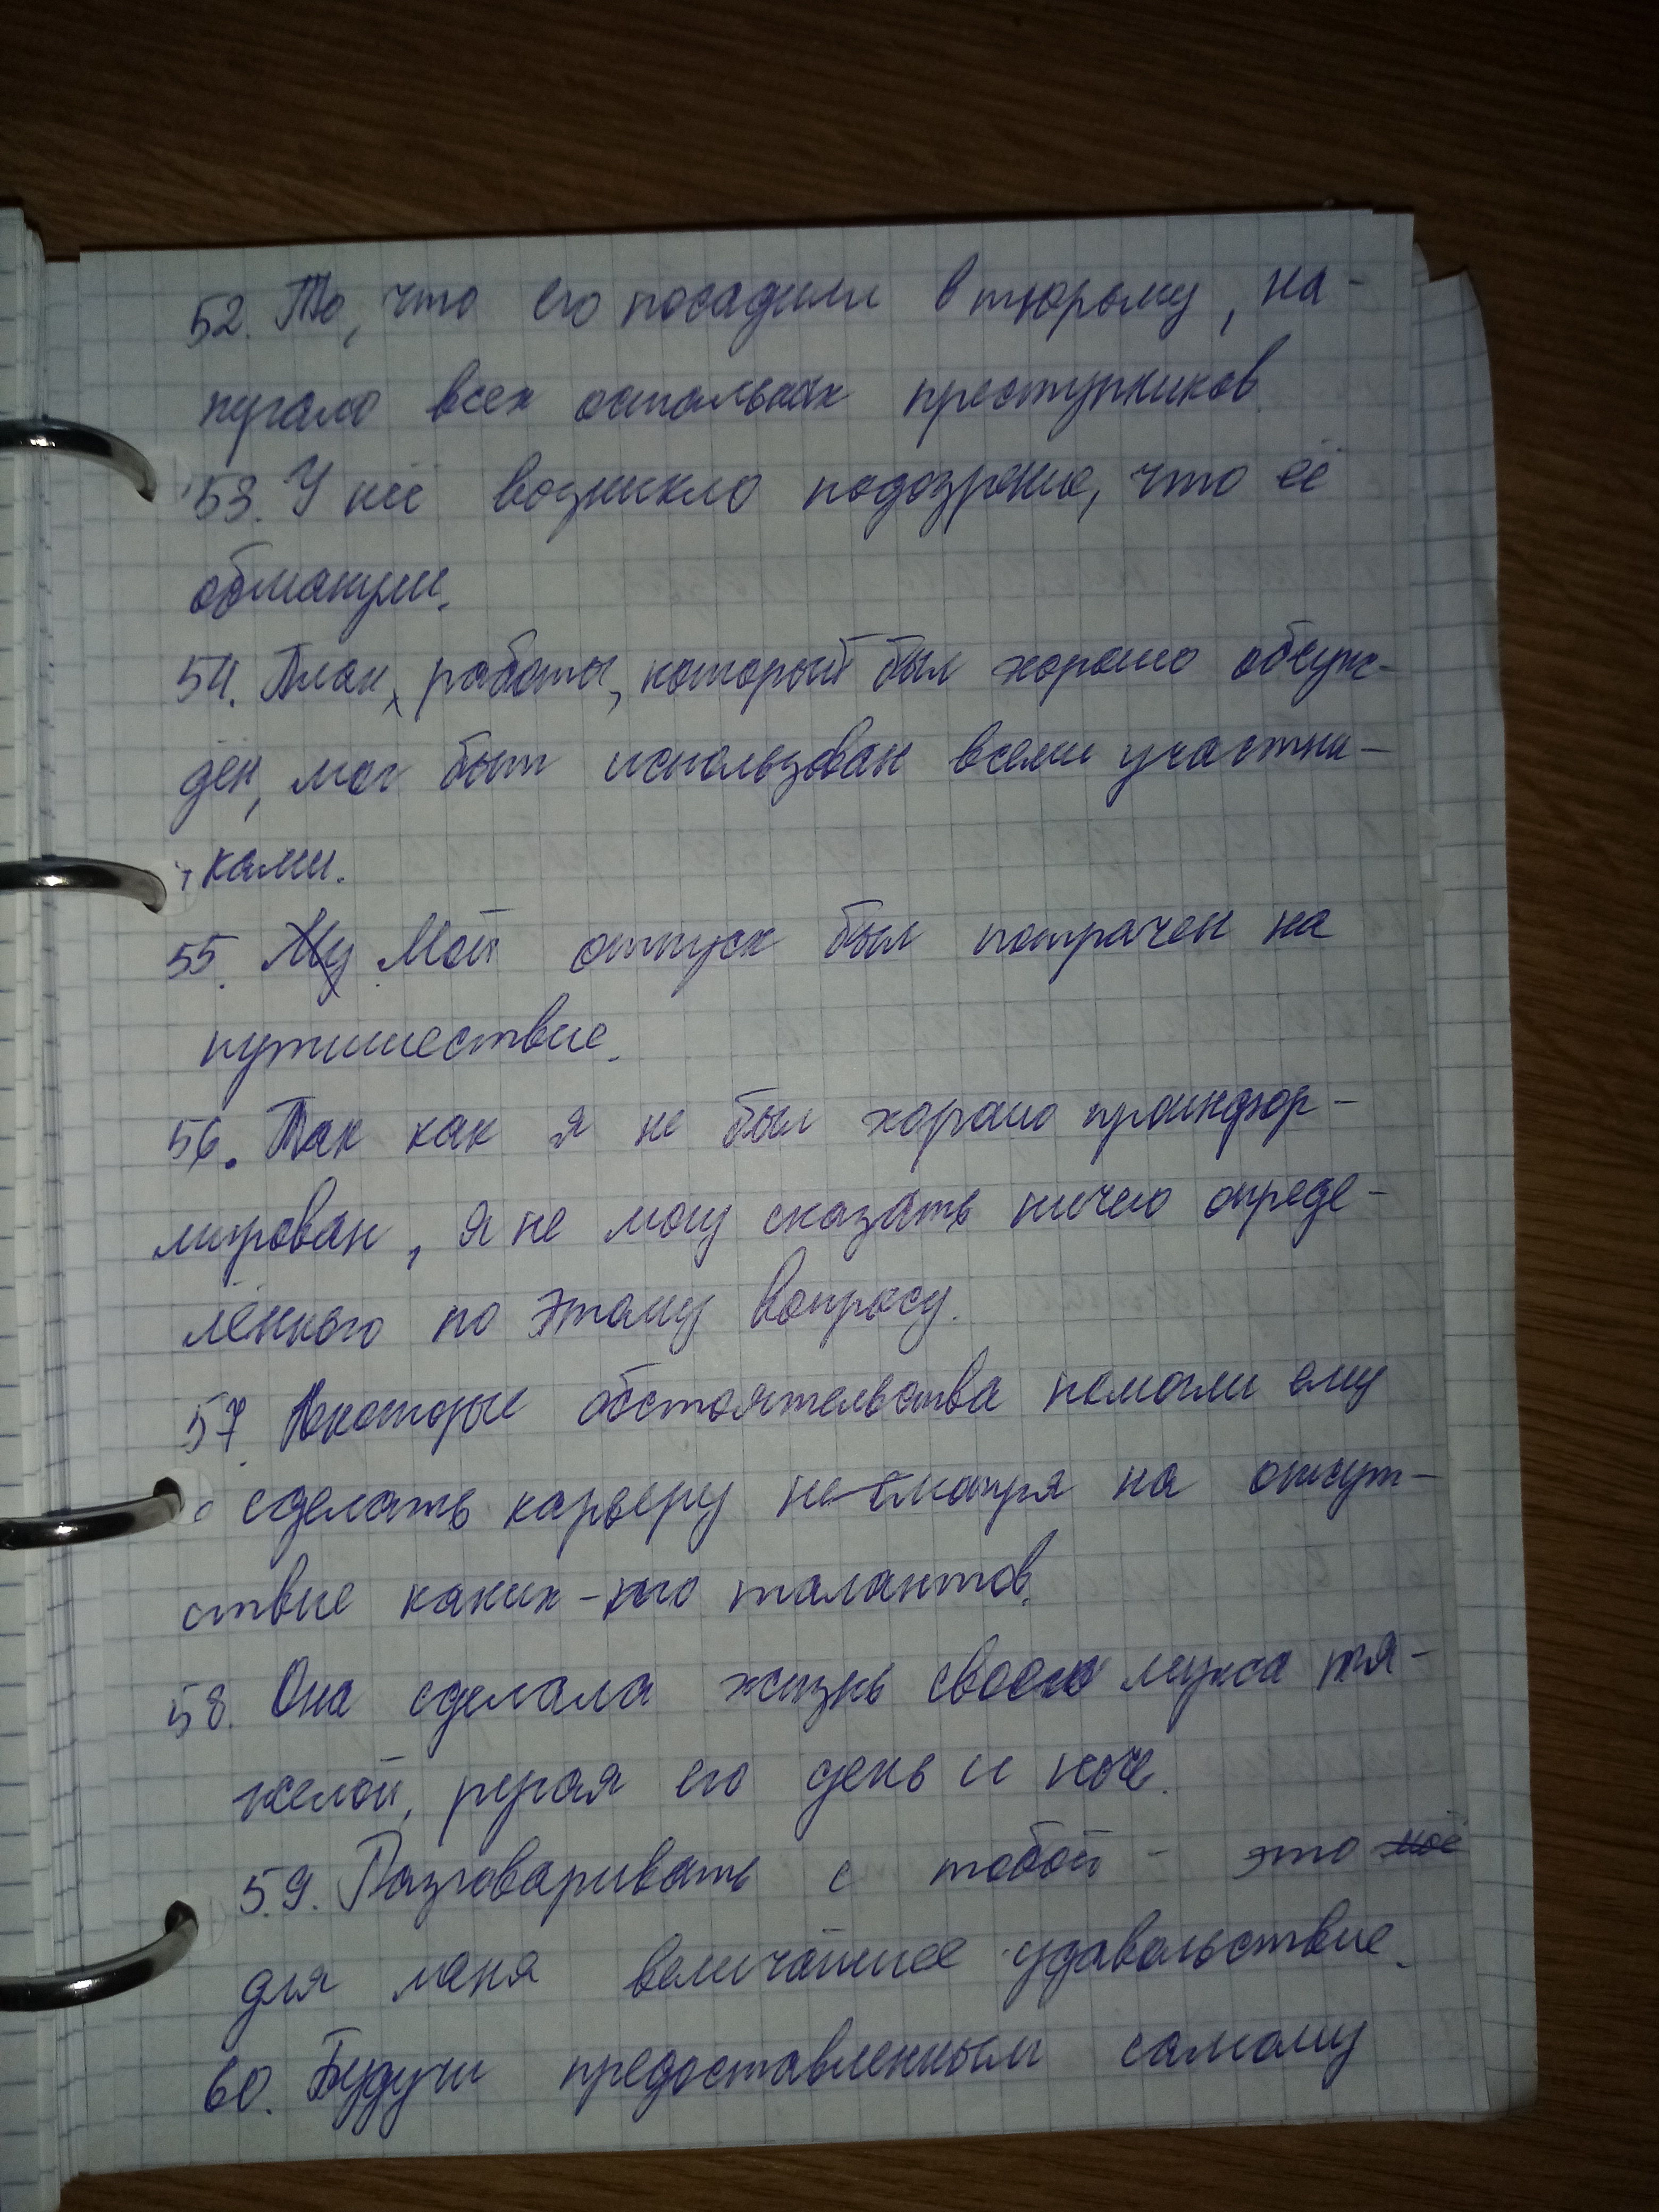 52. То, что его посадили в тюрьму, на-
пугало всех остальных преступников.
53. У неё возникло подозрение, что её
обманули.
54. План работы, который был хорошо обсуж-
дён, мог быть использован всеми участни-
ками.
55. Му Мой отпуск был потрачен на
путешествие.
56. Так как я не был хорошо проинфор-
мирован, я не могу сказать ничего опреде-
лённого по этому вопросу.
57. Некоторые обстоятельства помогли ему
сделать карьеру не смотря на отсут-
ствие каких-то талантов.
58. Она сделала жизнь своего мужа тя-
желой, ругая его день и ноч.
59. Разговаривать с тобой - это моё
для меня величайшее удавольствие.
60. Будучи предоставленным самому